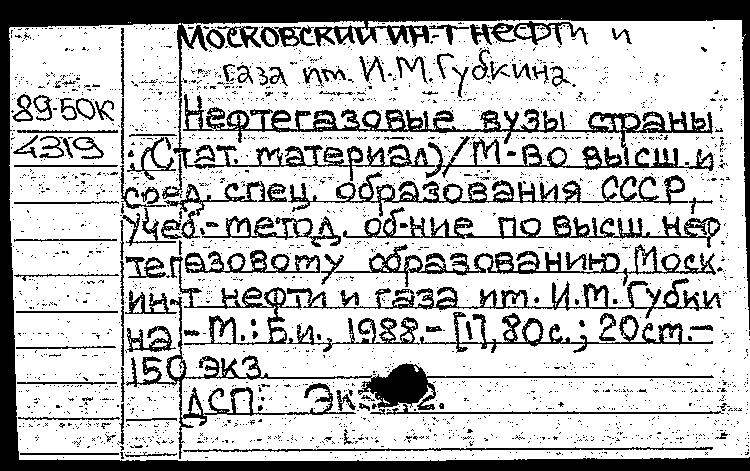 Московский ин-т нефти и
газа им. И.М.Губкина
89-50к
Нефтегазовые вузы страны
4319
: (Стат. материал) / М-во высш. и
сред. спец. образования СССР,
Учеб.-метод. об-ние по высш. неф
тегазовому образованию, Моск.
ин-т нефти и газа им. И.М. Губки
на. - М.: Б.и., 1988. - [1], 80с.; 20ст.-
150 экз.
ДСП: